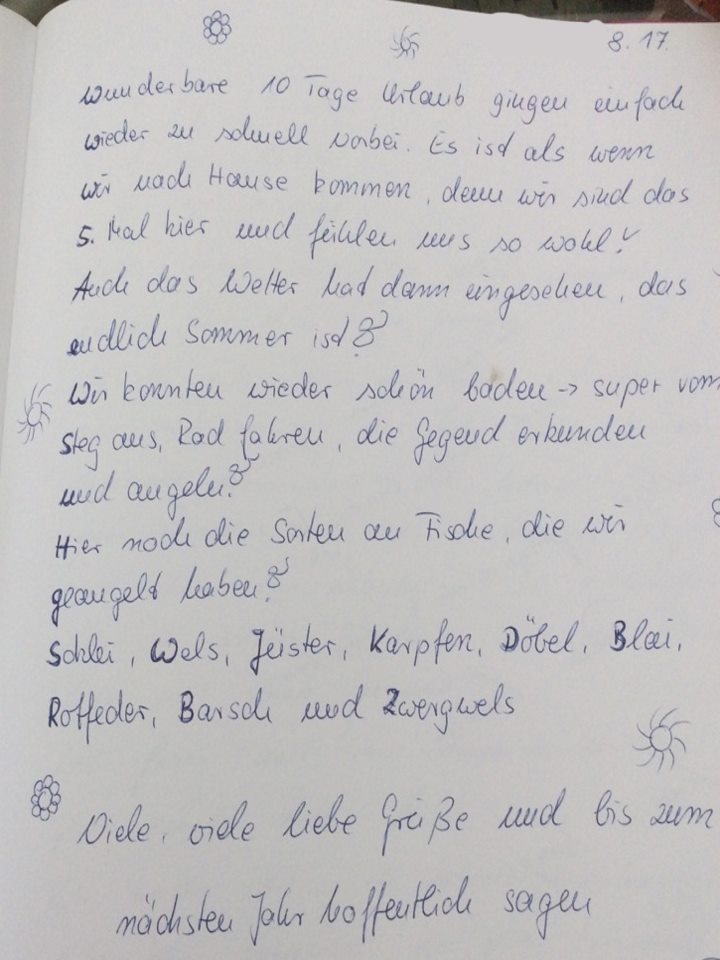 8.17.
Wunderbare 10 Tage Urlaub gingen einfach
wieder zu schnell vorbei. Es ist als wenn
wir nach Hause kommen, denn wir sind das
5. Mal hier und fühlen uns so wohl!
Auch das Wetter hat dann eingesehen, das
endlich Sommer ist!
Wir konnten wieder schön baden → super vom
Steg aus, Rad fahren, die Gegend erkunden
und angeln!
Hier noch die Sorten an Fische, die wir
geangelt haben!
Schlei, Wels, Jüster, Karpfen, Döbel, Blei,
Rotfeder, Barsch und Zwergwels
Viele, viele liebe Grüße und bis zum
nächsten Jahr hoffentlich sagen